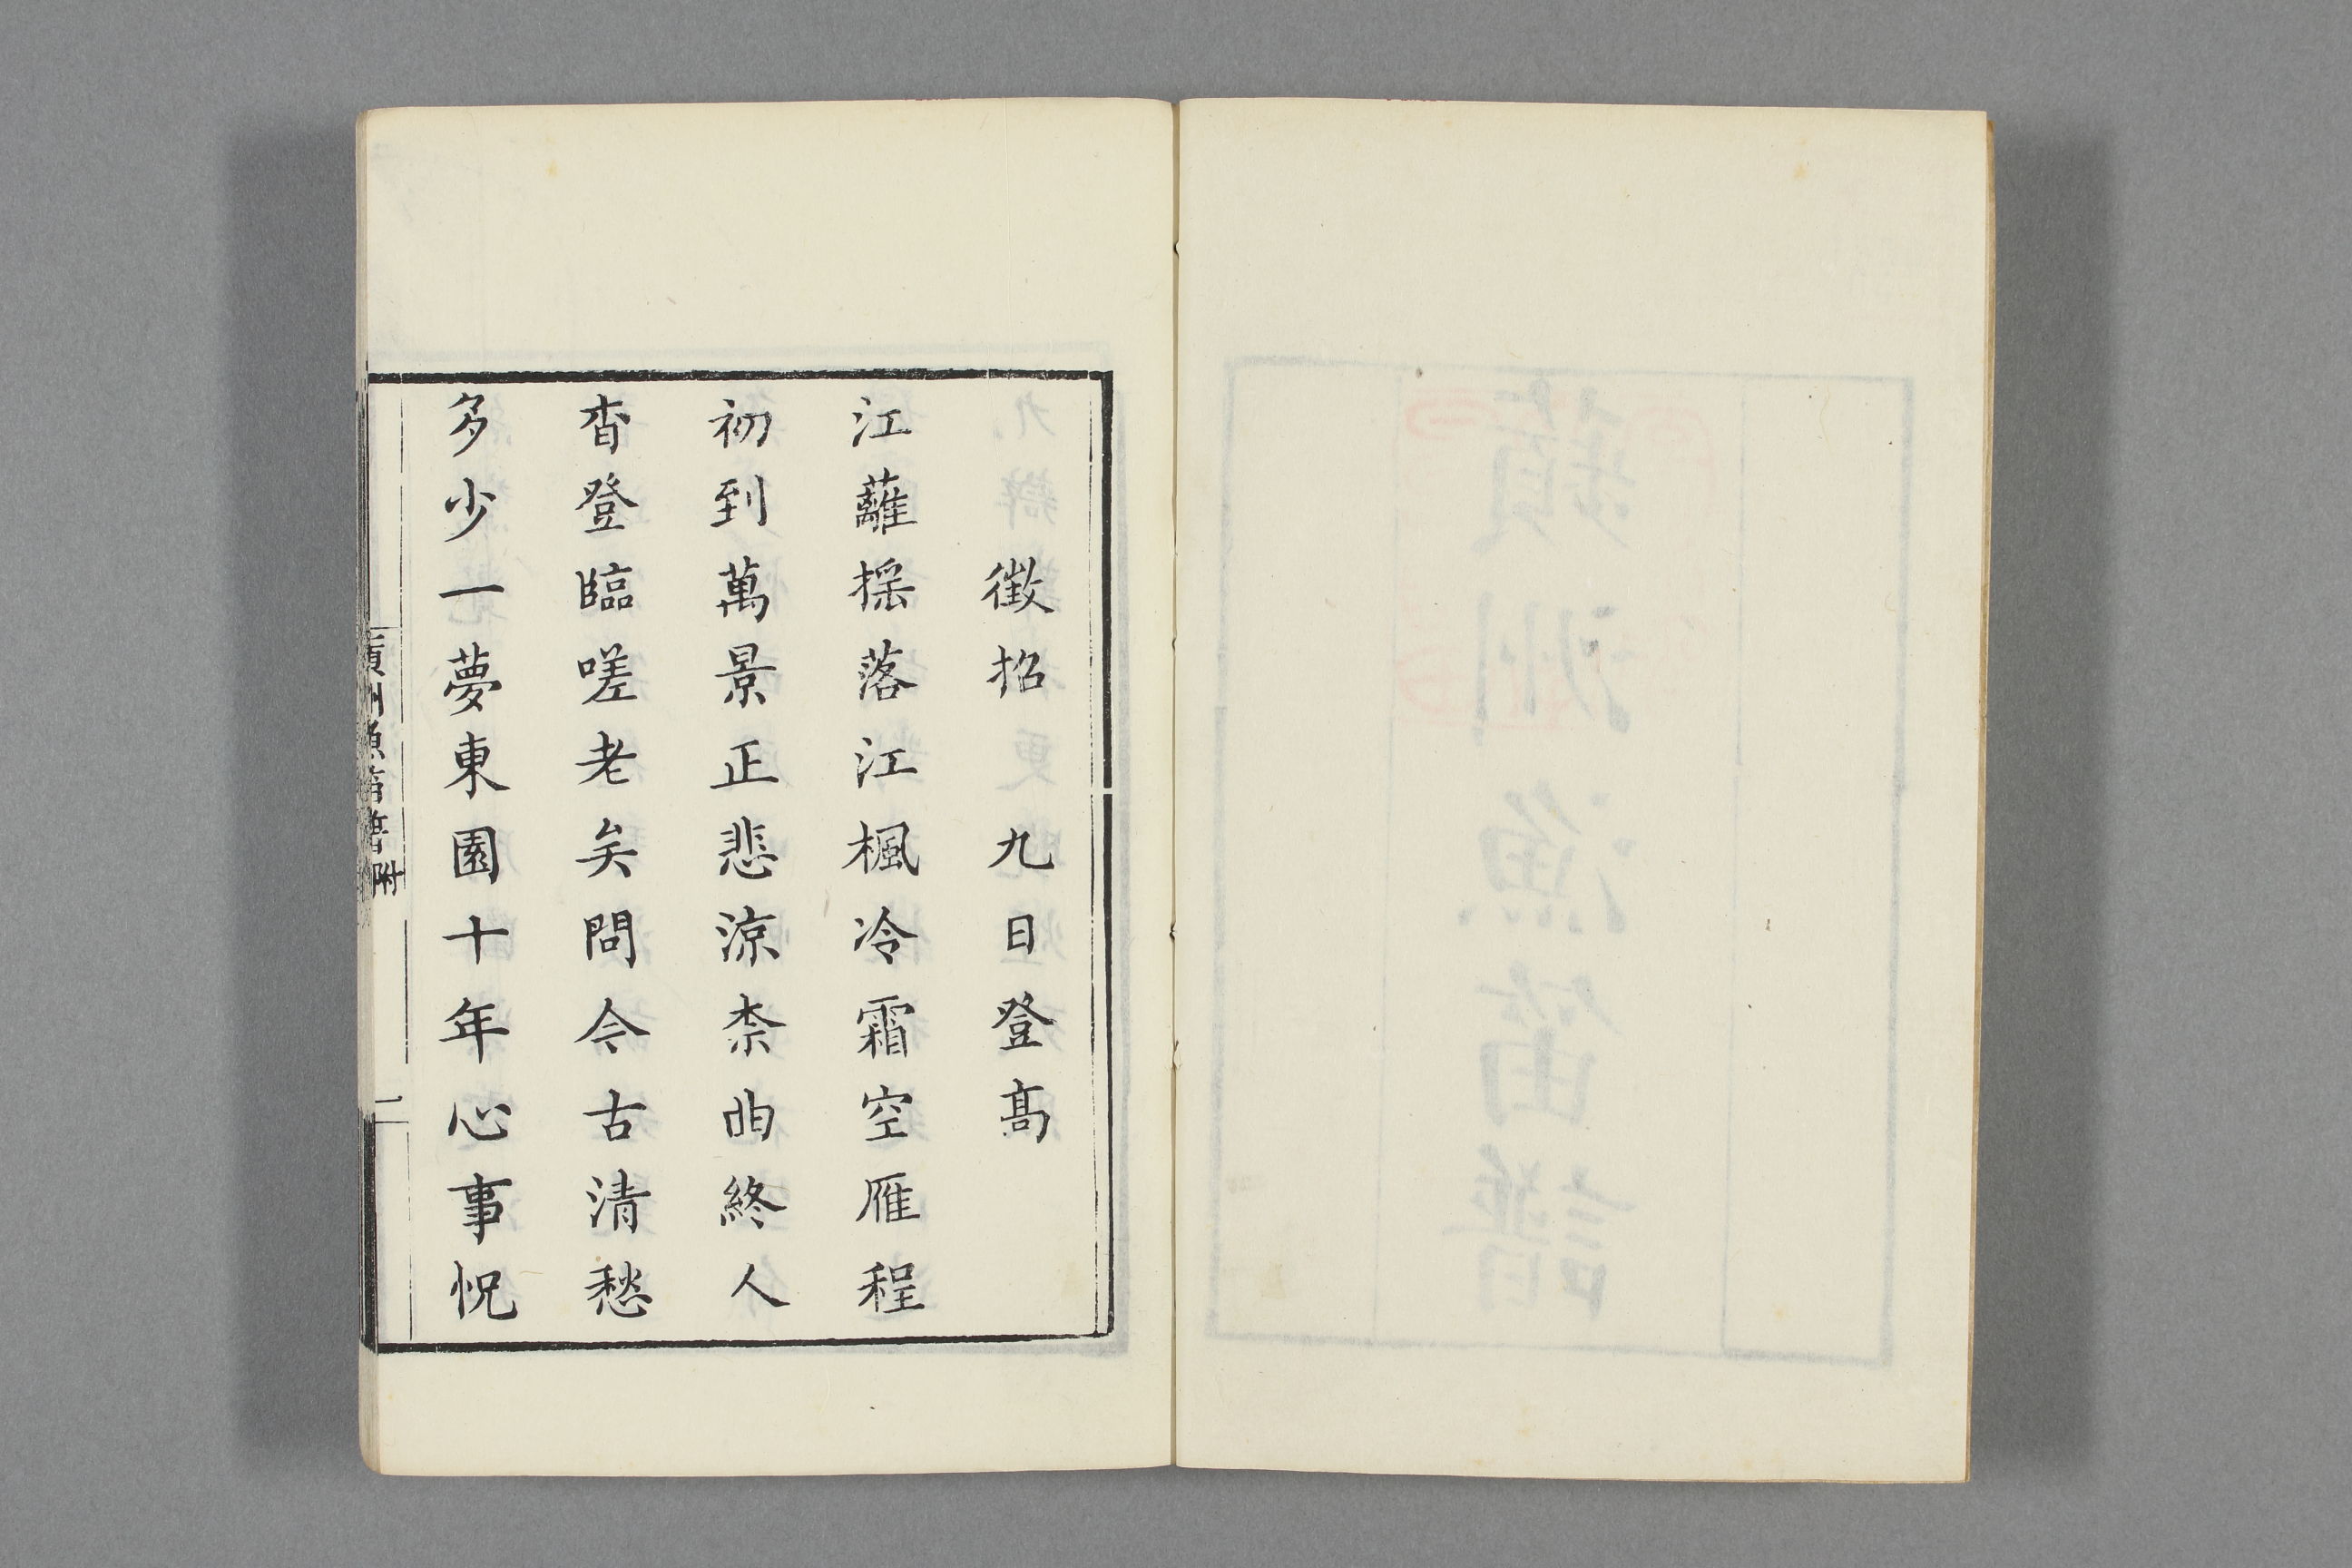 徵招 九日登高
江蘺揺落江楓冷霜空雁程
初到萬景正悲涼柰曲終人
杳登臨嗟老矣問今古清愁
多少一夢東園十年心事怳